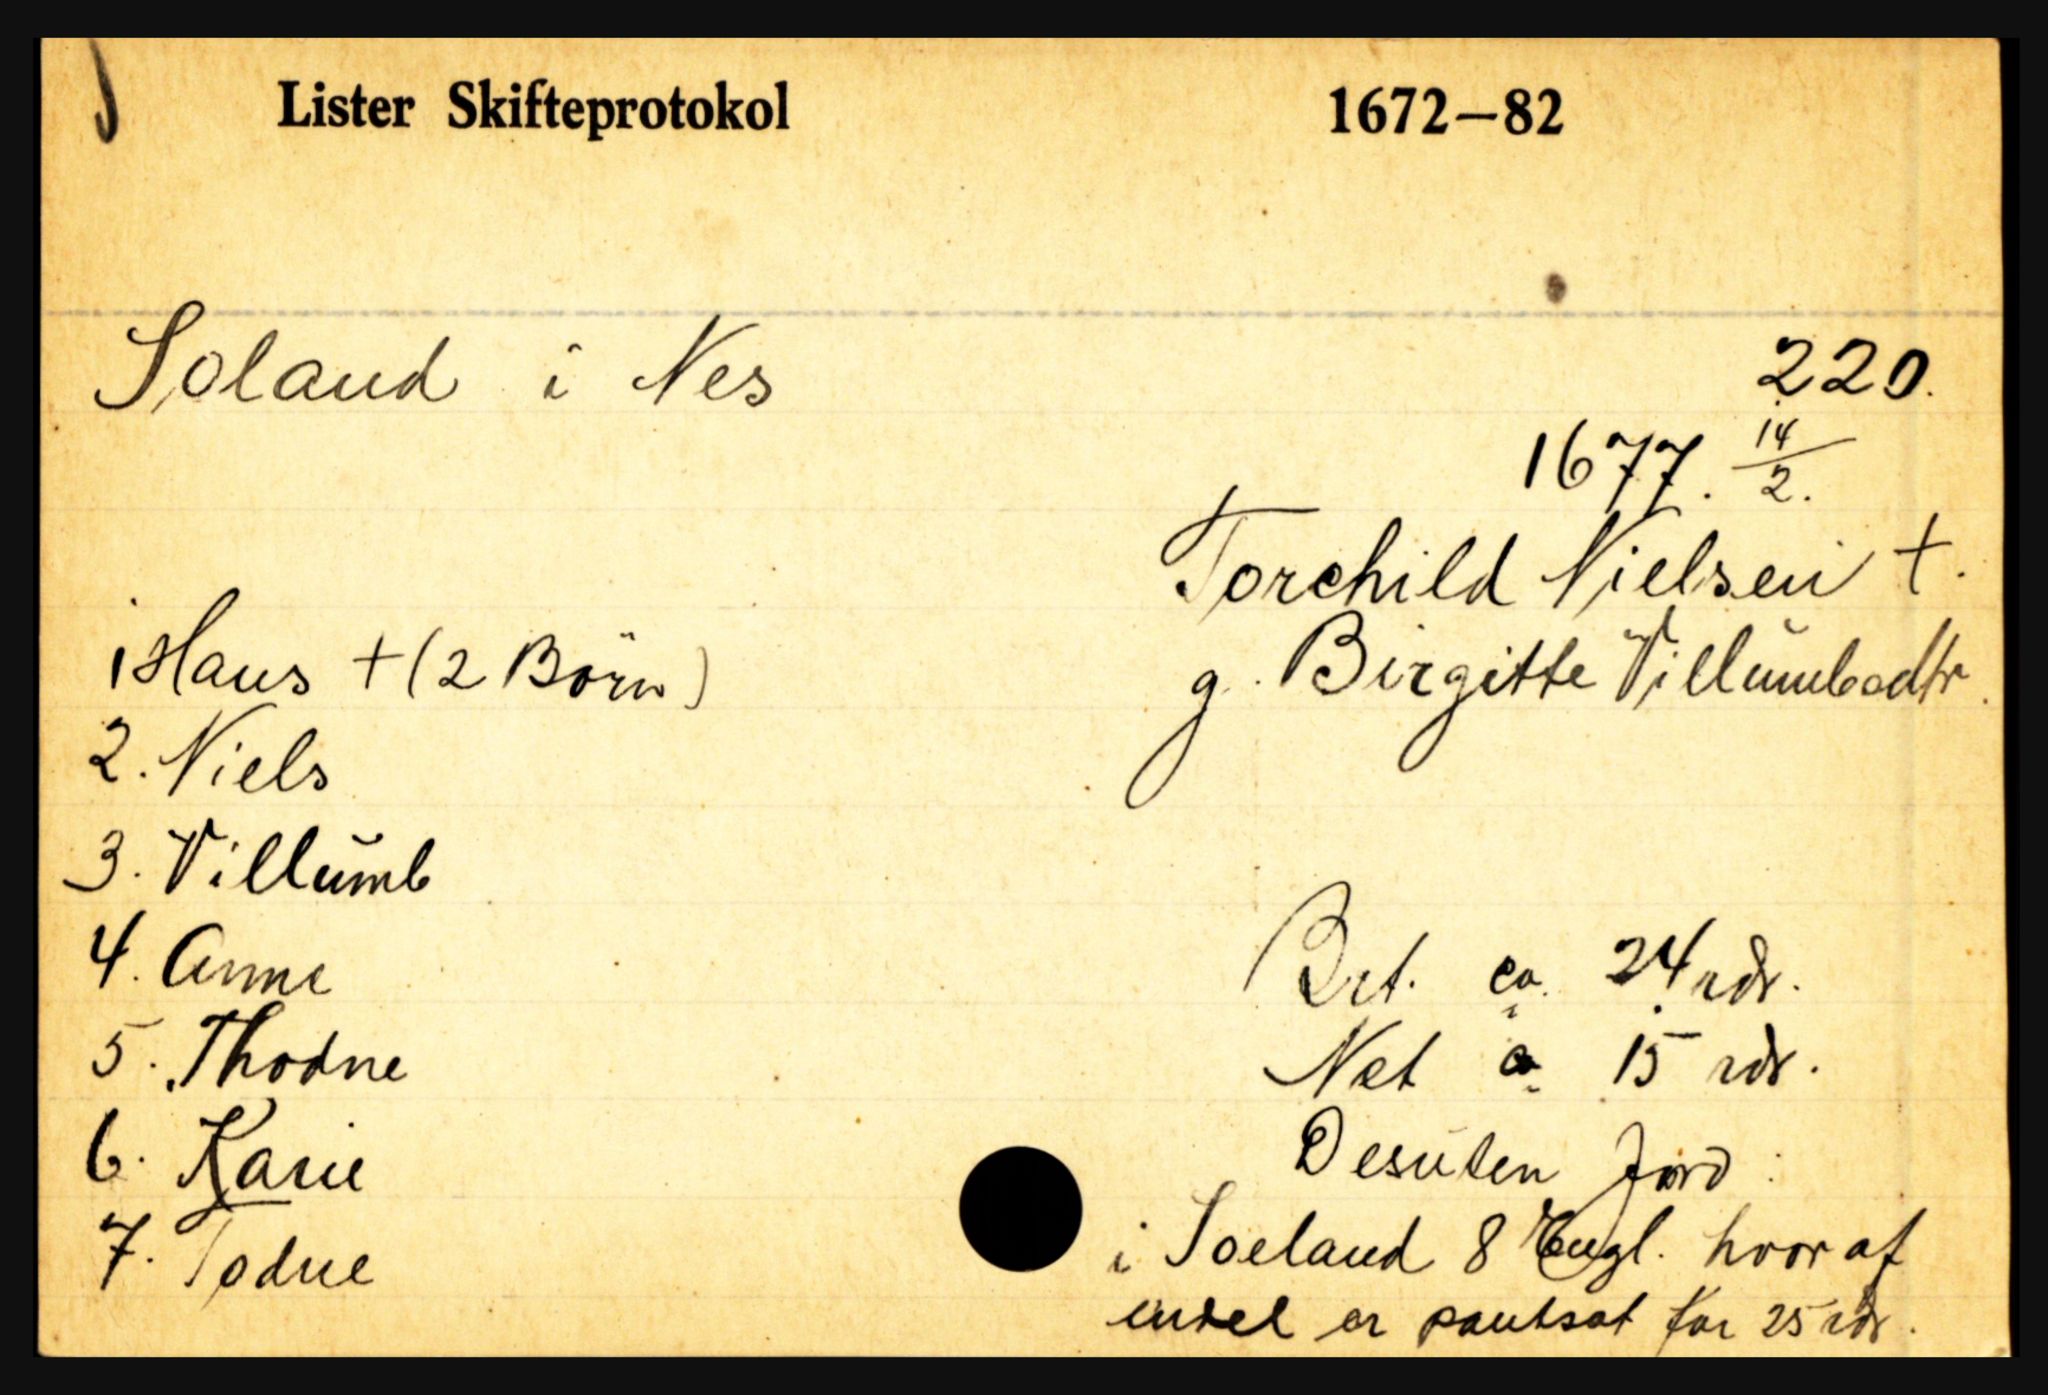 Lister Skifteprotokol 1672—82
Soland i Nes 220.
1677. 14/2.
Torchild Nielsen +.
g. Birgitte Villumbsdtr.
1 Hans + (2 Börn)
2. Niels
3. Villŭmb
4. Anne
5. Thodne
6. Karie
7. Todne
Brt. ca. 24 rdr.
Net ca. 15 rdr.
Desŭten Jord :
i Soeland 8 Engl. hvoraf
endel er pantsat for 25 rdr.